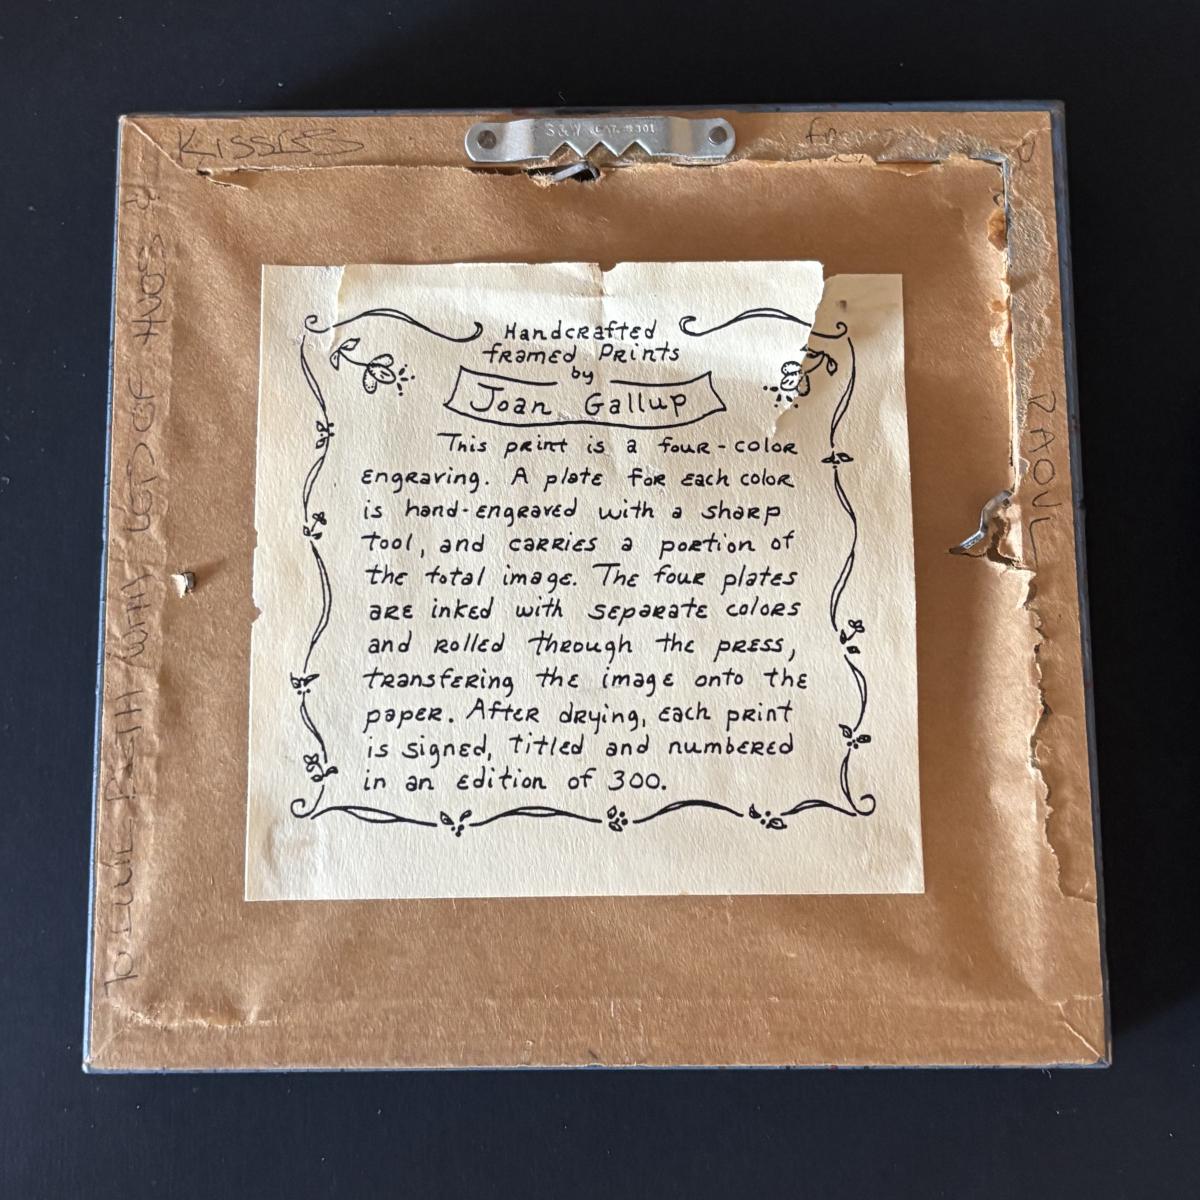 KISSES
S&W CAT. #301
TO EMIL, BETH, WITH LOTS OF HUGS &
RAOUL
Handcrafted
framed Prints
by
Joan Gallup
This print is a four-color
Engraving. A plate for each color
is hand-engraved with a sharp
tool, and carries a portion of
the total image. The four plates
are inked with separate colors
and rolled through the press,
transfering the image onto the
paper. After drying, each print
is signed, titled and numbered
in an edition of 300.